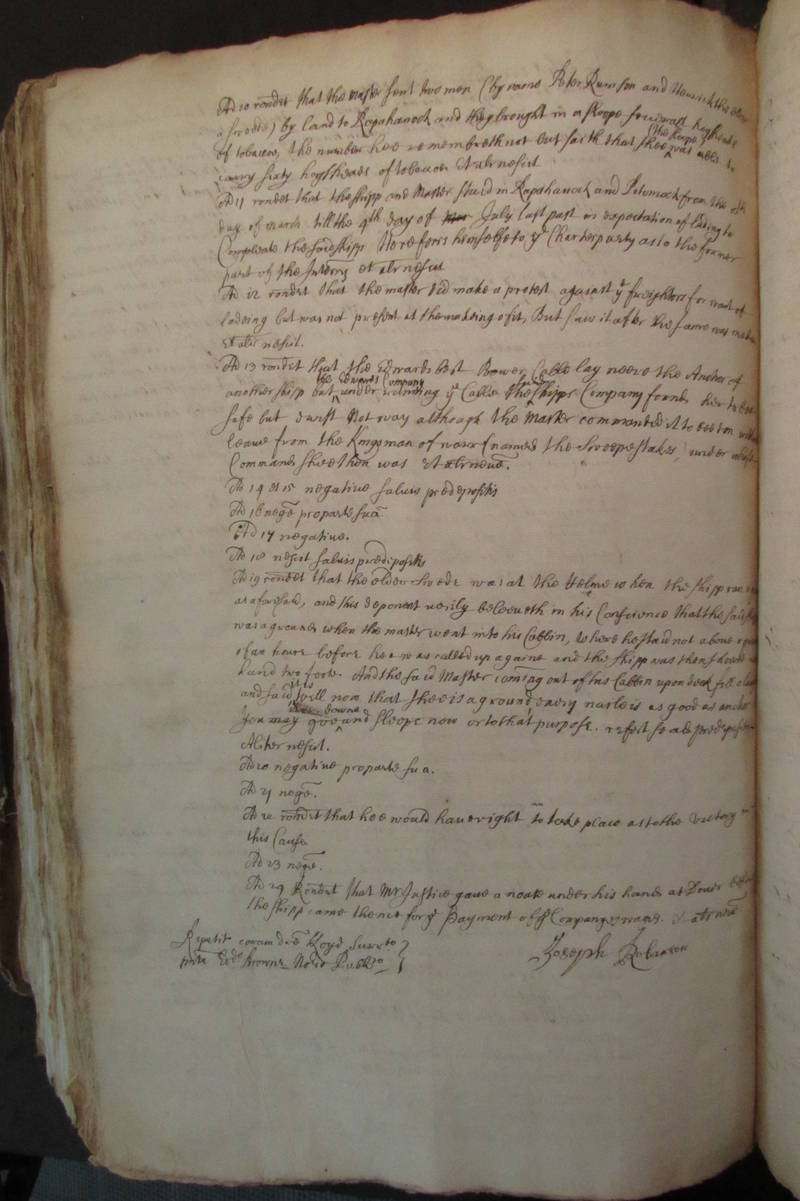 Ad 10 rondet that the Master sent two men (by name Peter Rumson and Henrick the elder
a swede) by land to Rapahanock and they brought in a sloope hogsheads
of tobacco, the number hee remembreth not but saith that shee (the sloope) was able to
carry sixty hogsheads of tobaccoe et alr nescit
Ad 11 rondet that the shipp and Master staid in Rapahanock and Potomock from the
day of march till the 4th day of July last past in expectation of lading to
Compleate the said shipp Hee refers himselfe to ye Charterparty as to the former
part of the Interry et alr nescit
Ad 12 rondet that the master did make a protest against ye freighters for want of
ladeing but was not present at the makeing of it, But saw it after the same was made
et alr nescit.
Ad 13 rondet that the Edwards best Bower Cable lay neere the Anchor of
another shipp but the Edwards Company under running ye Cable the shipps Company found her to bee
safe but swift not way although the Master commanded it to bee don
leave from the Kingsman of warr (named the Sweepestakes) under whose
Command shee then was et alr nescit.
Ad 14 et 15 negative salvis predepositis
Ad 16 nege pro parte sua
Ad 17 negative.
Ad 18 nescit salvis predepositis
Ad 19 rondet that the elder swede was at the Helme when the shipp ran
as aforesaid, and this deponent verily beleeveth in his Conscience that the said shipp
was a ground when the master went into his Cabbin, where he staid not above a quarter
of an houre before hee was called up againe and the shipp was then
and two foote. And the said Master coming out of his Cabbin upon deck
and said it is well now that shee is a ground every naile is as good as anchor
you may goe downe and sleepe now or to that purpose. nescit salvis predepositis
Aliter nescit.
Ad 20 negative pro parte sua.
Ad 21 nege.
Ad 22 rondet that hee would have right to take place as to the victory in
this Cause
Ad 23 nege.
Ad 24 Rondet that Mr Justice gave a noate under his hand at Dover before
the shipp came thence for ye Payment of ye Companys wages. et alr nescit
Repetit coram dre Lloyd Surrto
mee Notio Pubco
Joseph Robinson